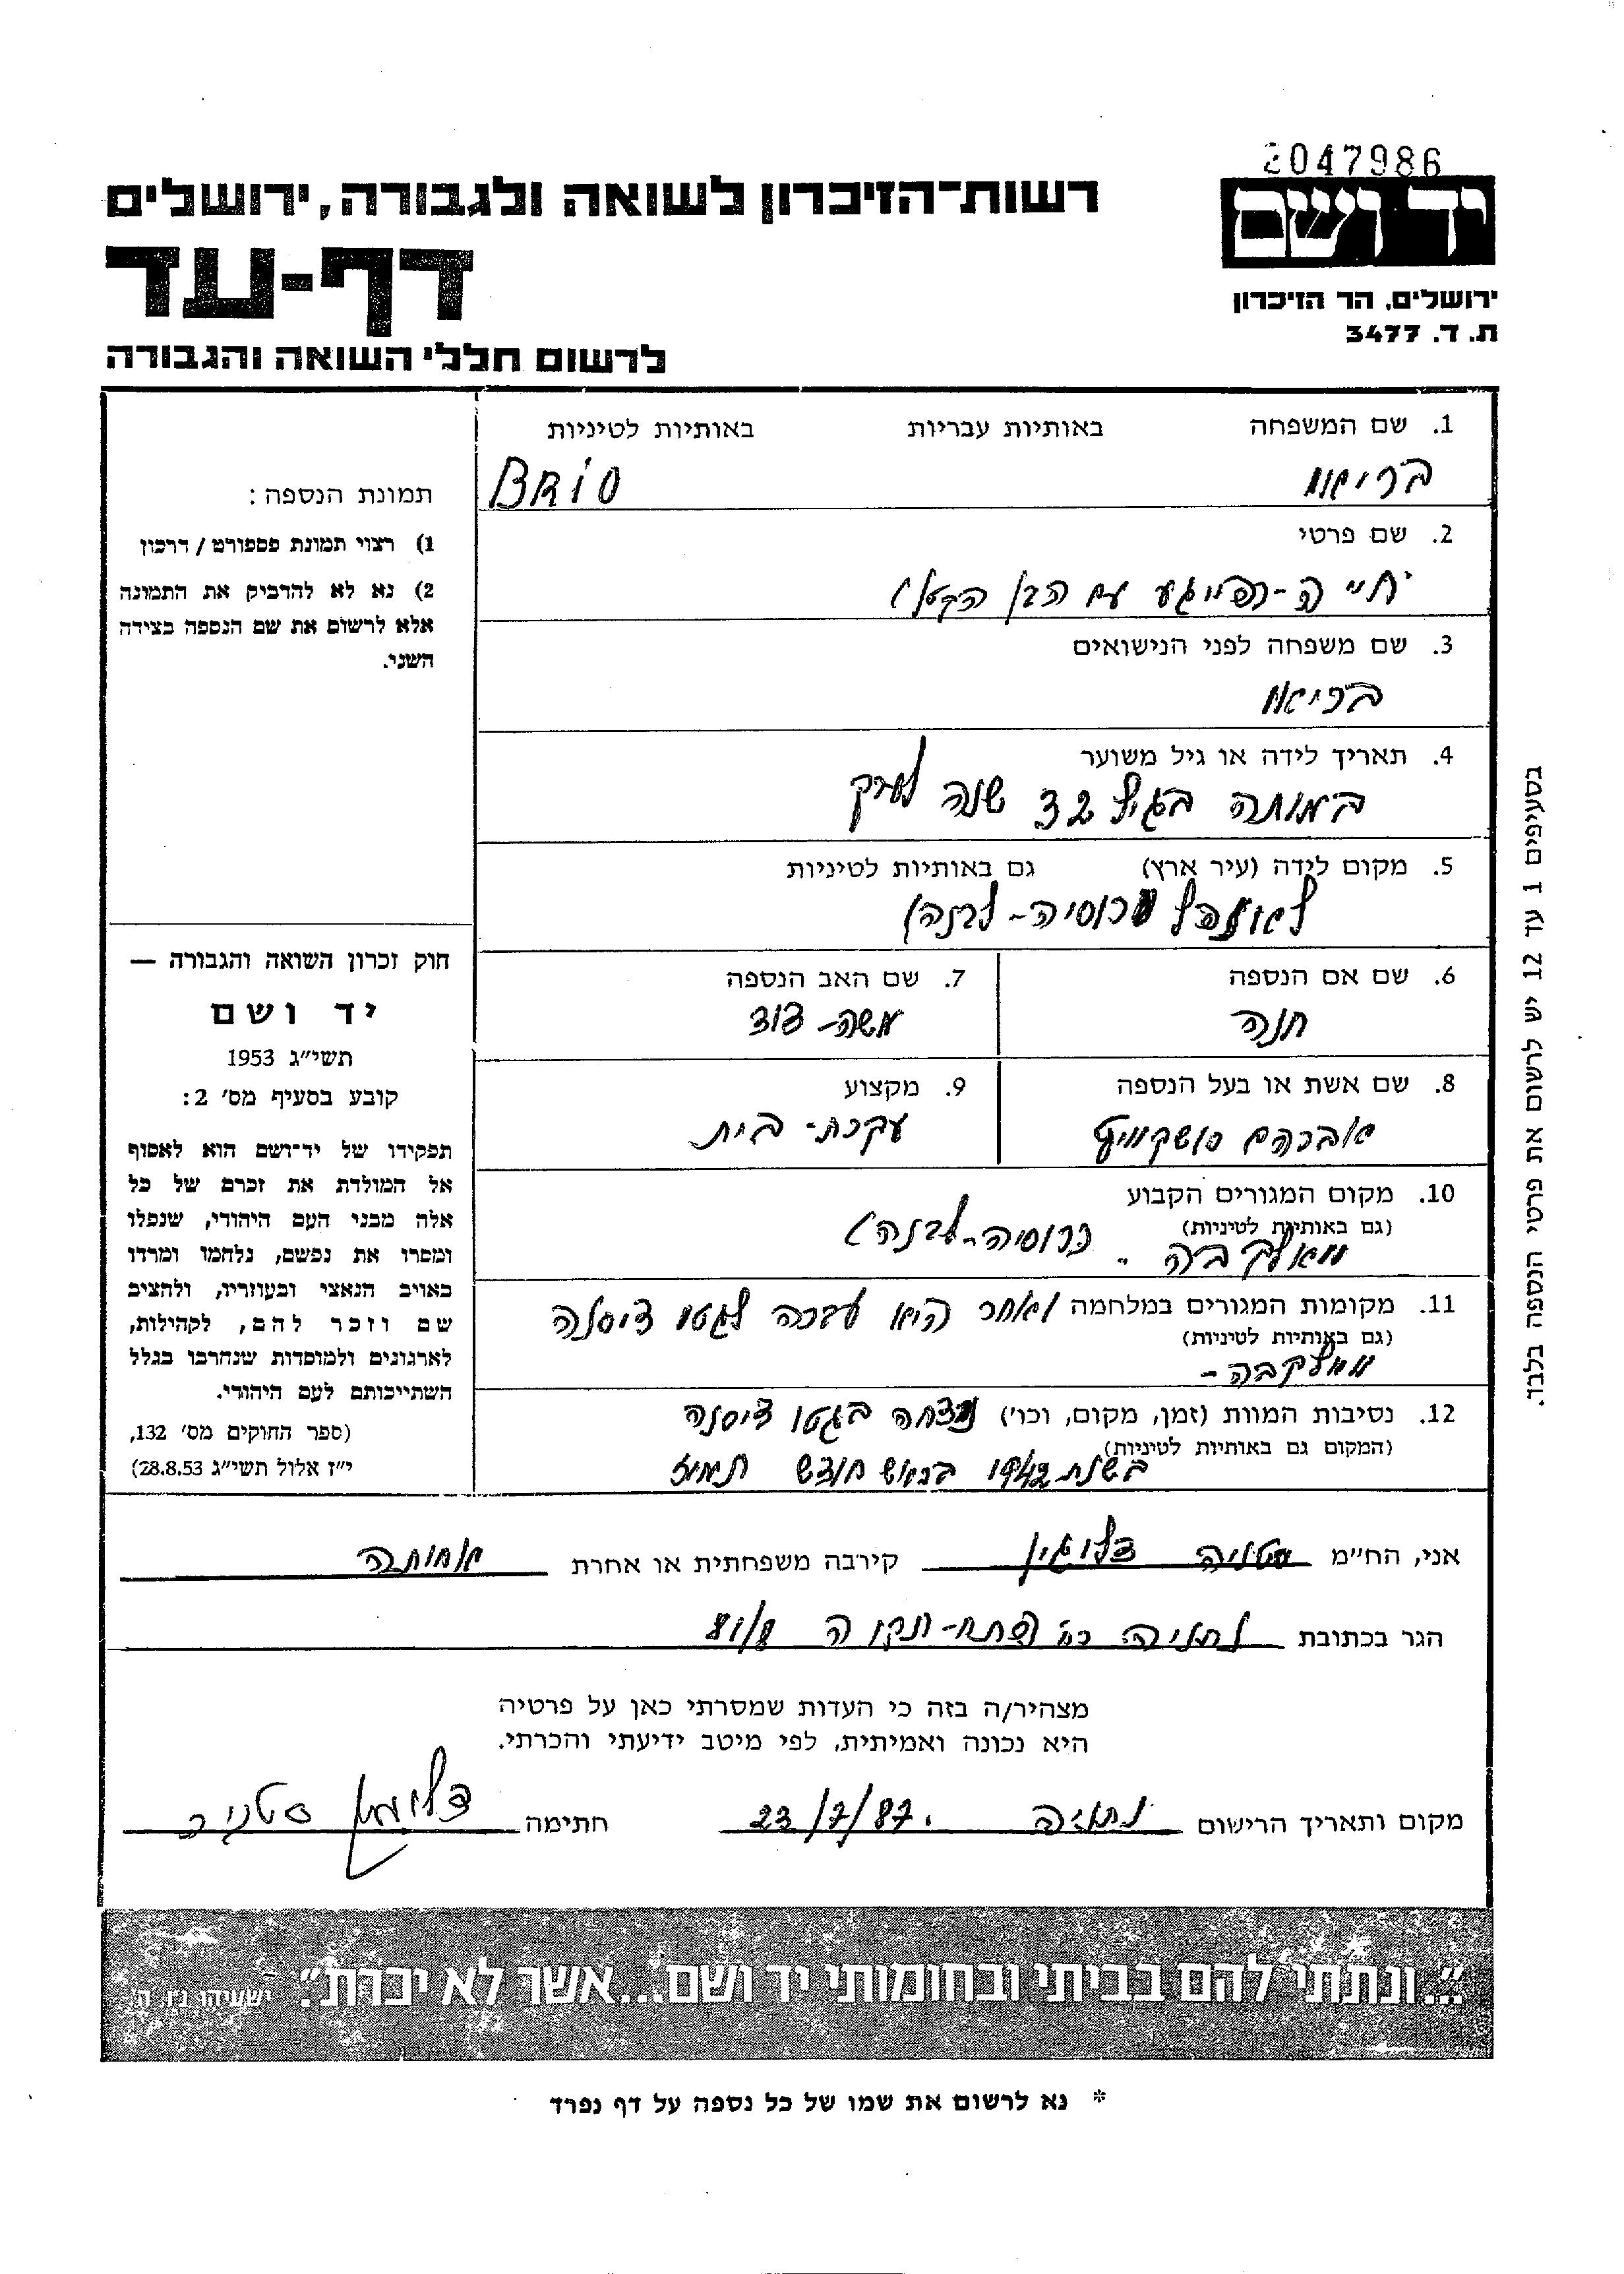 2047986
יד ושם
רשות־הזיכרון לשואה ולגבורה, ירושלים
דף-עד
ירושלים, הר הזיכרון
ת. ד. 3477
לרשום חללי השואה והגבורה
1. שם המשפחה באותיות עבריות באותיות לטיניות
בריאו BRiO
2. שם פרטי
חייה-פייגע עם הבן הקטן
3. שם משפחה לפני הנישואים
בריאו
4. תאריך לידה או גיל משוער
במותה בגיל 32 שנה לערך
5. מקום לידה (עיר ארץ) גם באותיות לטיניות
רוסיה-לבנה
6. שם אם הנספה 7. שם האב הנספה
חנה משה-דוד
8. שם אשת או בעל הנספה 9. מקצוע
אברהם עקרת-בית
10. מקום המגורים הקבוע
(גם באותיות לטיניות)
רוסיה-לבנה
11. מקומות המגורים במלחמה ואחר היא עברה לגטו דיסנה
(גם באותיות לטיניות)
12. נסיבות המוות (זמן, מקום, וכו') נרצחה בגטו דיסנה
(המקום גם באותיות לטיניות)
בשנת 1942 בראש חודש תמוז
תמונת הנספה:
1) רצוי תמונת פספורט / דרכון
2) נא לא להדביק את התמונה
אלא לרשום את שם הנספה בצידה
השני.
חוק זכרון השואה והגבורה —
יד ושם
תשי״ג 1953
קובע בסעיף מס׳ 2:
תפקידו של יד־ושם הוא לאסוף
אל המולדת את זכרם של כל
אלה מבני העם היהודי, שנפלו
ומסרו את נפשם, נלחמו ומרדו
באויב הנאצי ובעוזריו, ולהציב
שם וזכר להם, לקהילות,
לארגונים ולמוסדות שנחרבו בגלל
השתייכותם לעם היהודי.
(ספר החוקים מס׳ 132,
י״ז אלול תשי״ג 28.8.53)
בסעיפים 1 עד 12 יש לרשום את פרטי הנספה בלבד.
אני, הח״מ סטניה דלוגין קירבה משפחתית או אחרת אחותה
הגר בכתובת נתניה פתח-תקוה
מצהיר/ה בזה כי העדות שמסרתי כאן על פרטיה
היא נכונה ואמיתית, לפי מיטב ידיעתי והכרתי.
מקום ותאריך הרישום נתניה 23/7/87. חתימה דלוגין סטניה
״...ונתתי להם בביתי ובחומותי יד ושם...אשר לא יכרת״. ישעיהו נ״ו, ה׳
* נא לרשום את שמו של כל נספה על דף נפרד